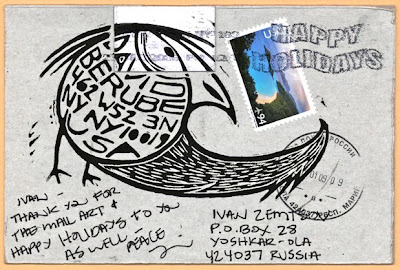 HAPPY
HOLIDAYS
DAVID
BERUBE
462 W 52 3N
NY NY 10019
USA
94
IVAN -
THANK YOU FOR
THE MAIL ART &
HAPPY HOLIDAYS TO YOU
AS WELL - PEACE
IVAN ZEMTSOV
P.O. BOX 28
YOSHKAR-OLA
424037 RUSSIA